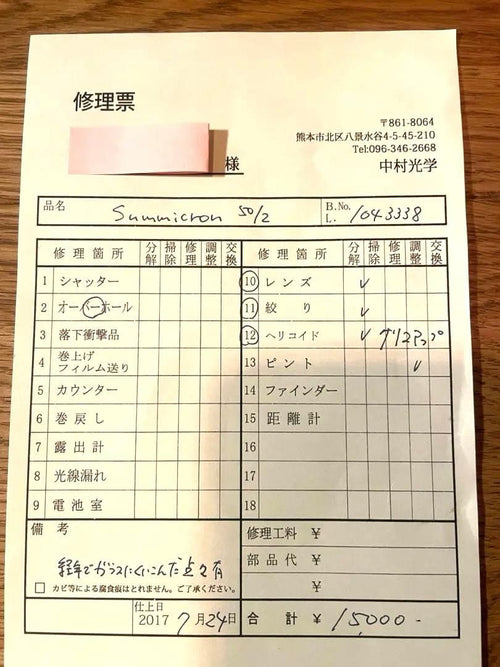 修理票
様
〒861-8064
熊本市北区八景水谷4-5-45-210
Tel:096-346-2668
中村光学
品名 Summicron 50/2 B.No. L. 1043338
修理箇所 分解 掃除 修理 調整 交換 修理箇所 分解 掃除 修理 調整 交換
1 シャッター 10 レンズ ✓
2 オーバーホール 11 絞り ✓
3 落下衝撃品 12 ヘリコイド ✓ グリスアップ
4 巻上げ フィルム送り 13 ピント ✓
5 カウンター 14 ファインダー
6 巻戻し 15 距離計
7 露出計 16
8 光線漏れ 17
9 電池室 18
備考 修理工料 ¥
部品代 ¥
経年でガラスにくいこんだ点々有
□ カビ等による腐食痕はとれません。ご了承ください。 ¥
仕上日 2017 7月24日 合計 ¥15000-